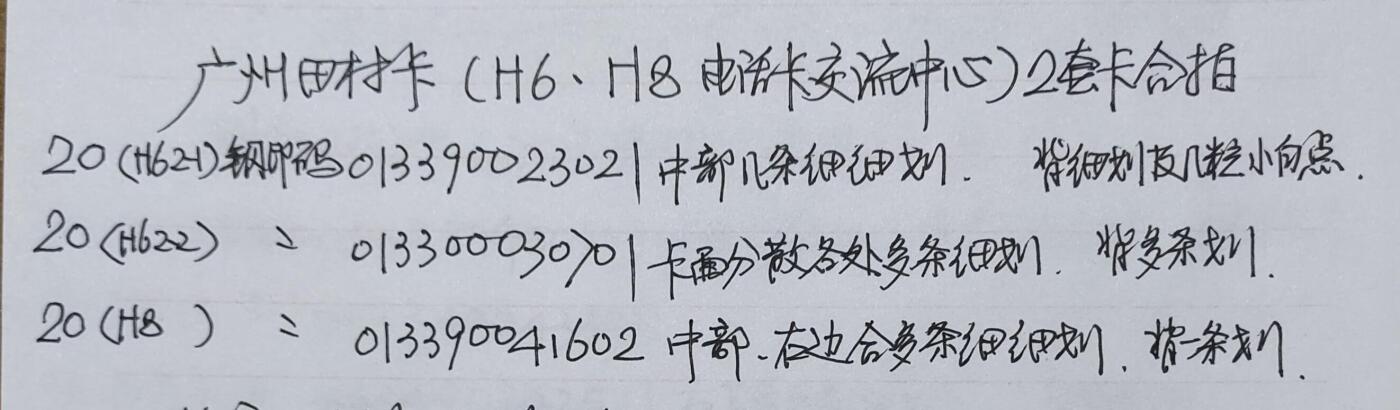 广州田村卡(H6、H8电话卡交流中心)2套卡合拍
20(H62-1)钢印码013390023021中部几条细细划. 背细划及几粒小白点.
20(H62-2) 〃 013300030701卡面分散各处多条细划. 背多条划.
20(H8 ) 〃 013390041602中部、右边合多条细细划. 背一条划.